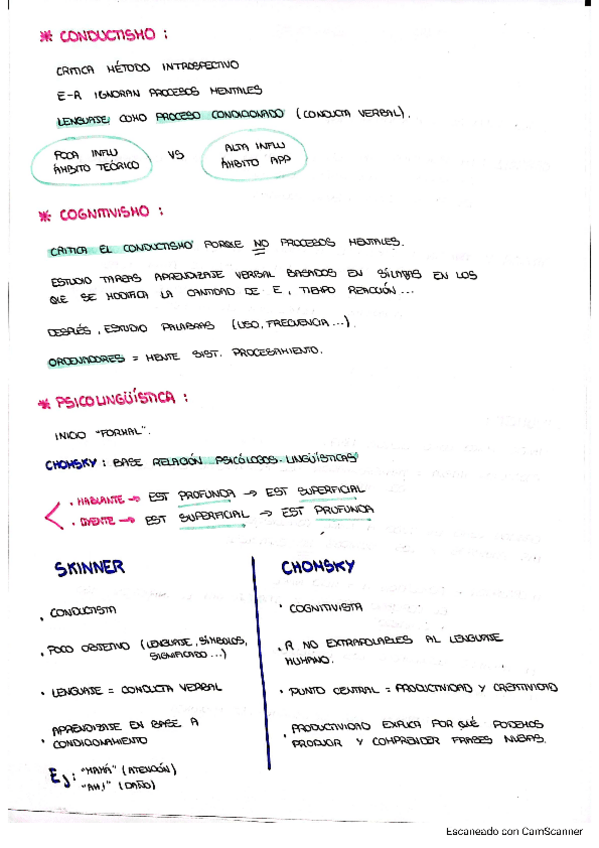 * CONDUCTISMO :
CRITICA MÉTODO INTROSPECTIVO
E-R IGNORAN PROCESOS MENTALES
LENGUAJE COMO PROCESO CONDICIONADO (CONDUCTA VERBAL).
POCA INFLU
ÁMBITO TEÓRICO
VS
ALTA INFLU
ÁMBITO APP
* COGNITIVISMO :
CRITICA EL CONDUCTISMO PORQUE NO PROCESOS MENTALES.
ESTUDIO TAREAS APRENDIZAJE VERBAL BASADOS EN SÍLABAS EN LOS
QUE SE MODIFICA LA CANTIDAD DE E, TIEMPO REACCIÓN...
DESPUÉS, ESTUDIO PALABRAS (USO, FRECUENCIA...)
ORDENADORES = MENTE SIST. PROCESAMIENTO.
* PSICOLINGÜÍSTICA :
INICIO "FORMAL".
CHOMSKY : BASE RELACIÓN PSICÓLOGOS-LINGÜÍSTICAS
· HABLANTE → EST PROFUNDA → EST SUPERFICIAL
· OYENTE → EST SUPERFICIAL → EST PROFUNDA
SKINNER
· CONDUCTISTA
· POCO OBJETIVO (LENGUAJE, SÍMBOLOS,
SIGNIFICADO...)
· LENGUAJE = CONDUCTA VERBAL
APRENDIZAJE EN BASE A
· CONDICIONAMIENTO
Ej: "MAMÁ" (ATENCIÓN)
"AH!" (DAÑO)
CHOMSKY
· COGNITIVISTA
· R NO EXTRAPOLABLES AL LENGUAJE
HUMANO.
· PUNTO CENTRAL = PRODUCTIVIDAD Y CREATIVIDAD
· PRODUCTIVIDAD EXPLICA POR QUÉ PODEMOS
PRODUCIR Y COMPRENDER FRASES NUEVAS.
Escaneado con CamScanner